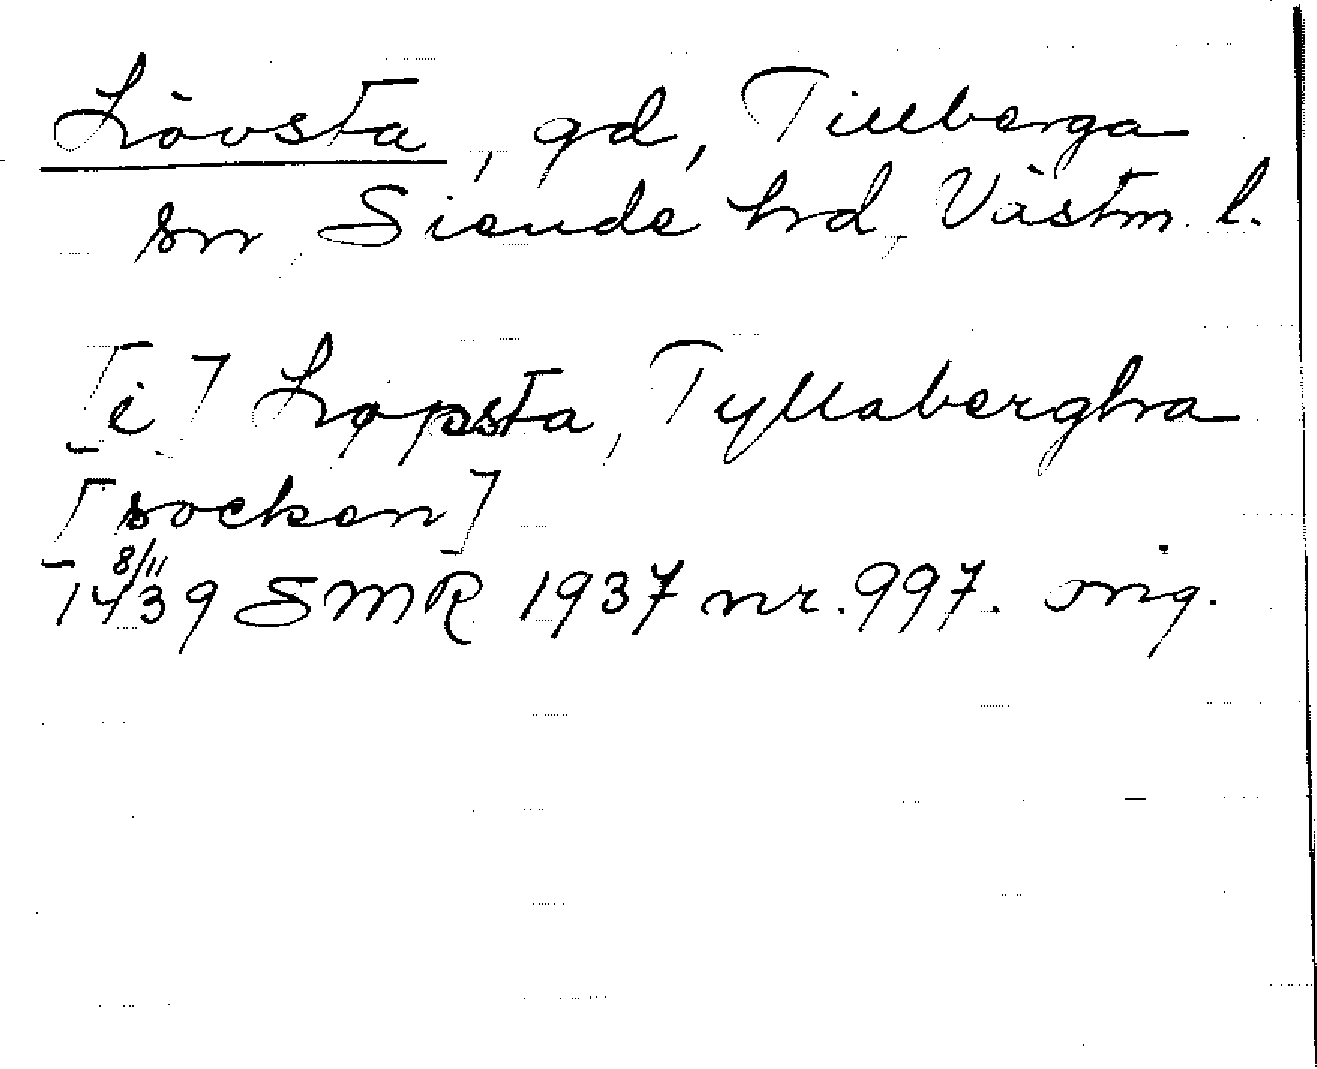 Lövsta, gd, Tillberga
sn, Siende hrd, Västm. l.
[i] Løpsta, Tyllabergha
[socken]
8/11
1439 SMR 1937 nr. 997. orig.